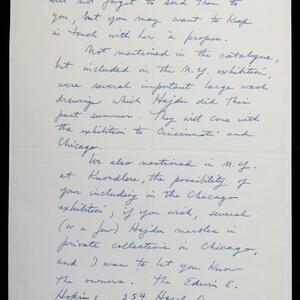 will not forget to send them to
you, but you may want to keep
in touch with her in propon.
Not mentioned in the catalogue,
but included in the N.Y. exhibition,
were several important large wash
drawings which Hajdu did this
past summer. They will come with
the exhibition to Cincinnati and
Chicago.
We also mentioned in N.Y.
at Knoedlers, the possibility of
your including in the Chicago
exhibition, if you wish, several
(or a few) Hajdu marbles in
private collections in Chicago,
and I was to let you know
the owners. The Edwin E.
Hokins 254